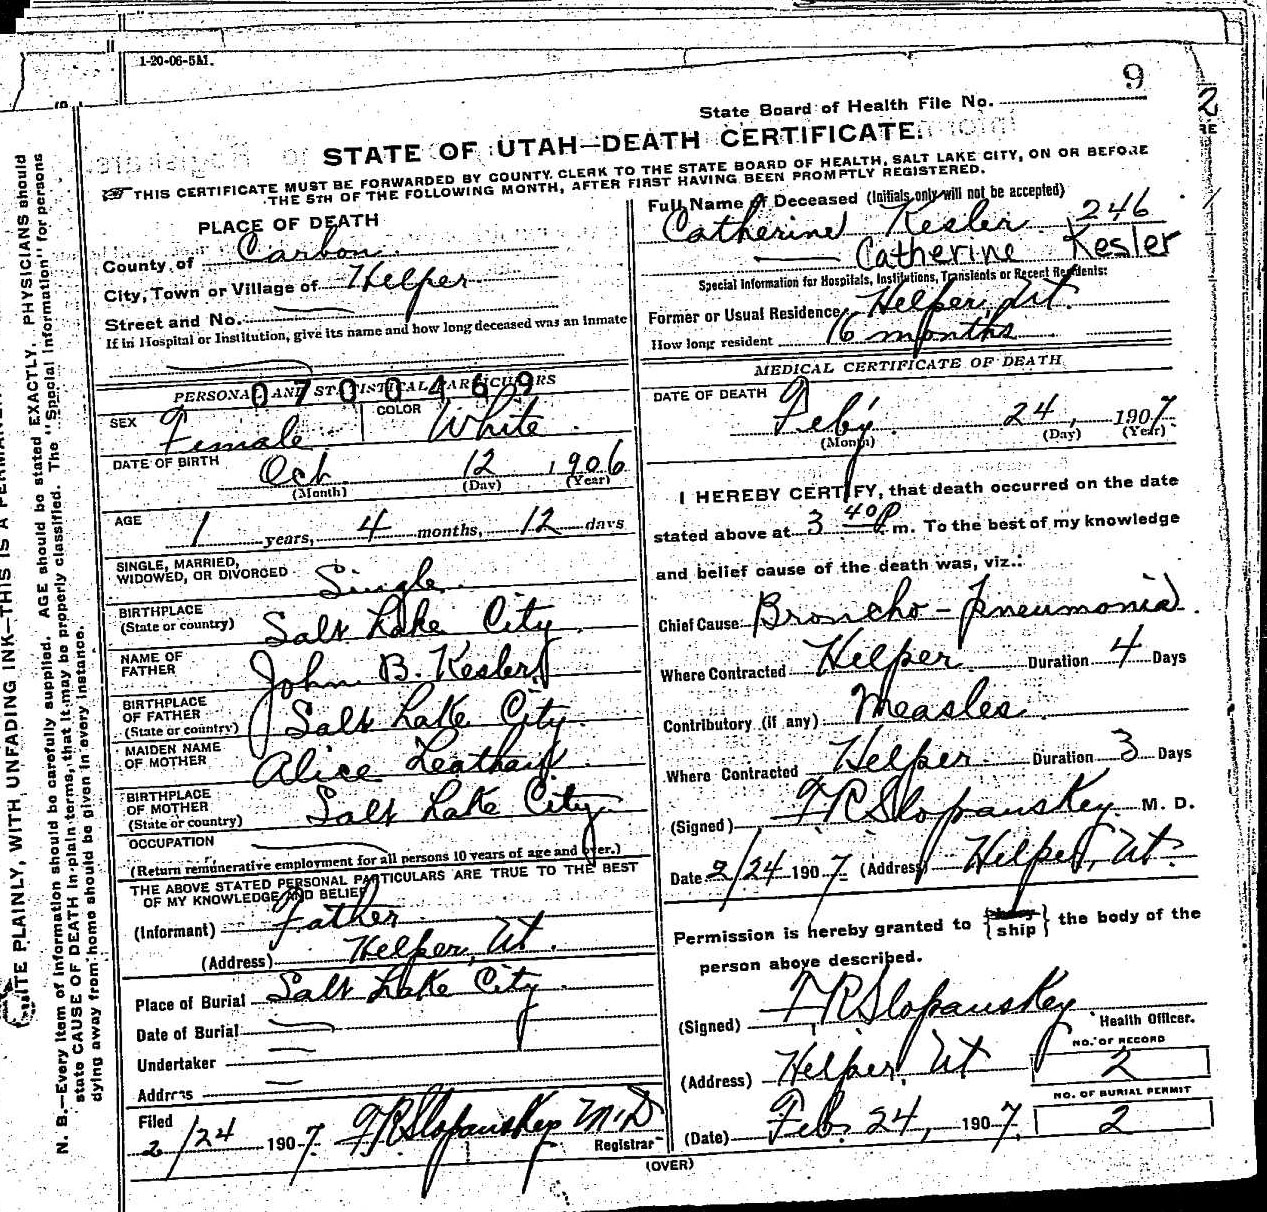 1-20-06-5M.
9
State Board of Health File No.
2
STATE OF UTAH—DEATH CERTIFICATE.
THIS CERTIFICATE MUST BE FORWARDED BY COUNTY CLERK TO THE STATE BOARD OF HEALTH, SALT LAKE CITY, ON OR BEFORE
THE 5TH OF THE FOLLOWING MONTH, AFTER FIRST HAVING BEEN PROMPTLY REGISTERED.
PLACE OF DEATH
County of Carbon
City, Town or Village of Helper
Street and No.
If in Hospital or Institution, give its name and how long deceased was an inmate
PERSONAL AND STATISTICAL PARTICULARS
0700469
SEX Female COLOR White
DATE OF BIRTH Oct 12, 1906
(Month) (Day) (Year)
AGE 1 years, 4 months, 12 days
SINGLE, MARRIED,
WIDOWED, OR DIVORCED Single
BIRTHPLACE
(State or country) Salt Lake City
NAME OF
FATHER John B. Kesler
BIRTHPLACE
OF FATHER
(State or country) Salt Lake City
MAIDEN NAME
OF MOTHER Alice
BIRTHPLACE
OF MOTHER
(State or country) Salt Lake City
OCCUPATION
(Return remunerative employment for all persons 10 years of age and over.)
THE ABOVE STATED PERSONAL PARTICULARS ARE TRUE TO THE BEST
OF MY KNOWLEDGE AND BELIEF
(Informant) Father
(Address) Helper, Ut.
Place of Burial Salt Lake City
Date of Burial
Undertaker
Address
Filed
2/24 1907 F R Slopanskey M.D
Registrar
Full Name of Deceased (Initials only will not be accepted)
Catherine Kesler 246
Catherine Kesler
Special Information for Hospitals, Institutions, Transients or Recent Residents:
Former or Usual Residence Helper, Ut.
How long resident 16 months
MEDICAL CERTIFICATE OF DEATH
DATE OF DEATH
Feby 24, 1907
(Month) (Day) (Year)
I HEREBY CERTIFY, that death occurred on the date
stated above at 3 40 P. m. To the best of my knowledge
and belief cause of the death was, viz.:
Chief Cause: Broncho-Pneumonia
Where Contracted Helper Duration 4 Days
Contributory (if any) Measles
Where Contracted Helper Duration 3 Days
(Signed) F R Slopanskey M. D.
Date 2/24 1907. (Address) Helper, Ut.
Permission is hereby granted to ship the body of the
person above described.
(Signed) F R Slopanskey
Health Officer.
(Address) Helper, Ut
NO. OF RECORD
2
NO. OF BURIAL PERMIT
(Date) Feb. 24, 1907. 2
(OVER)
N. B.—Every item of information should be carefully supplied. AGE should be stated EXACTLY. PHYSICIANS should
state CAUSE OF DEATH in plain terms, that it may be properly classified. The "Special Information" for persons
dying away from home should be given in every instance.
PLAINLY, WITH UNFADING INK—THIS IS A